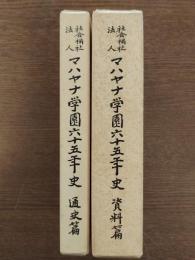 社会福祉
法人
マハヤナ学園六十五年史 通史篇
社会福祉
法人
マハヤナ学園六十五年史 資料篇